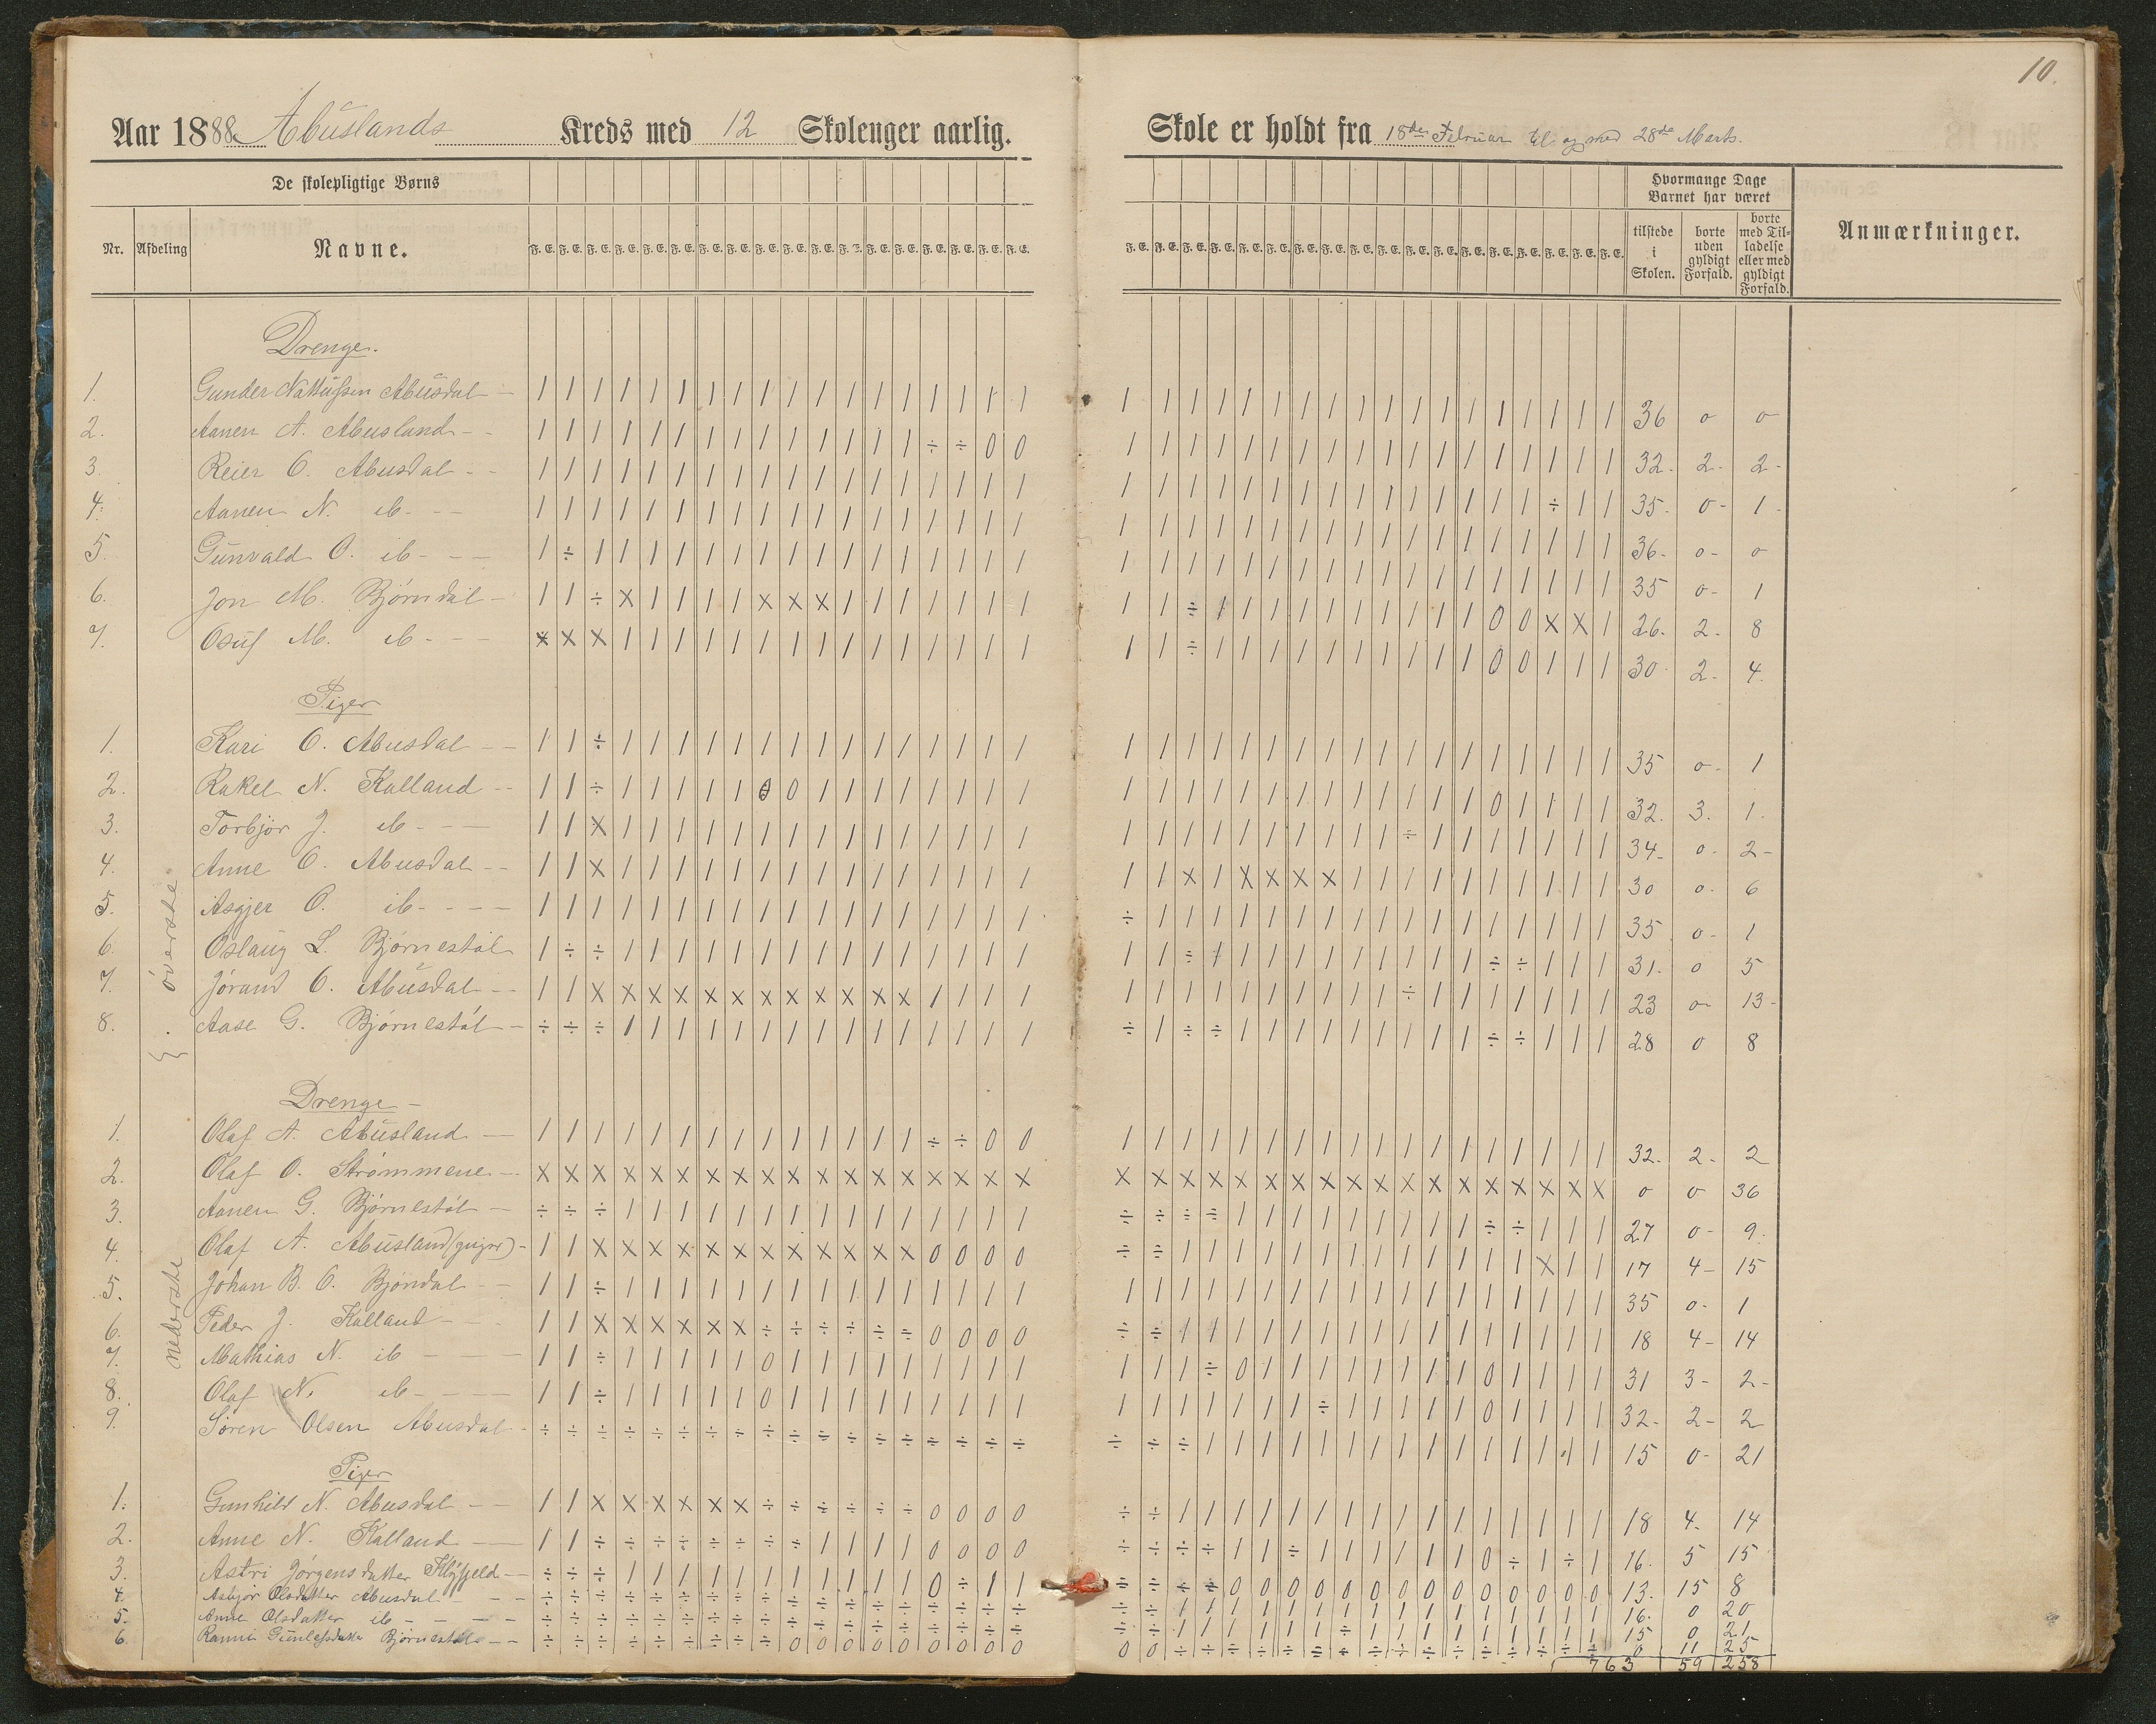 10.
Aar 1888 Abuslands Kreds med 12 Skolenger aarlig.
Skole er holdt fra 18de Februar til og med 28de Marts.
De skolepligtige Børns
Hvormange Dage Barnet har været
Nr. Afdeling Navne.
F. E. F. E. F. E. F. E. F. E. F. E. F. E. F. E. F. E. F. E. F. E. F. E. F. E. F. E. F. E. F. E. F. E. F. E.
tilstede i Skolen.
borte uden gyldigt Forfald.
borte med Tilladelse eller med gyldigt Forfald.
Anmærkninger.
øverste
Drenge.
1. Gunder Nattussen Abusdal 36 0 0
2. Aanen A. Abusland 32 2 2
3. Reier O. Abusdal 35 0 1
4. Aanen N. ib 36 0 0
5. Gunvald O. ib 35 0 1
6. Jon M. Bjørndal 26 2 8
7. Osuf M. ib 30 2 4
Piger
1. Kari O. Abusdal 35 0 1
2. Rakel N. Kalland 32 3 1
3. Torbjør J. ib 34 0 2
4. Anne O. Abusdal 30 0 6
5. Asgjer O. ib 35 0 1
6. Oslaug L. Bjørnestøl 31 0 5
7. Jørand O. Abusdal 23 0 13
8. Aase G. Bjørnestøl 28 0 8
nederste
Drenge
1. Olaf A. Abusland 32 2 2
2. Olaf O. Strømmene 0 0 36
3. Aanen G. Bjørnestøl 27 0 9
4. Olaf A. Abusland 17 4 15
5. Johan B. O. Bjøndal 35 0 1
6. Peder J. Kalland 18 4 14
7. Mathias N. ib 31 3 2
8. Olaf N. ib 32 2 2
9. Søren Olsen Abusdal 15 0 21
Piger
1. Gunhild N. Abusdal 18 4 14
2. Anne N. Kalland 16 5 15
3. Astri Jørgensdatter 13 15 8
4. Asbjør Olsdatter Abusdal 16 0 20
5. Anne Olsdatter ib 15 0 21
6. Ranni Gunleifsdatter Bjørnestøl 0 11 25
763 59 258